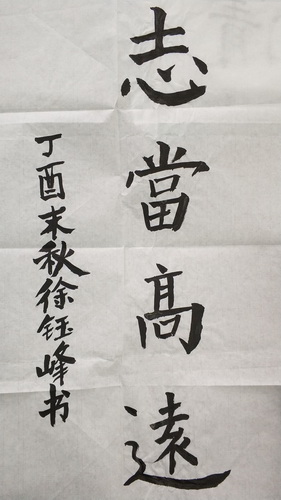 志當髙遠
丁酉末秋徐钰峰书